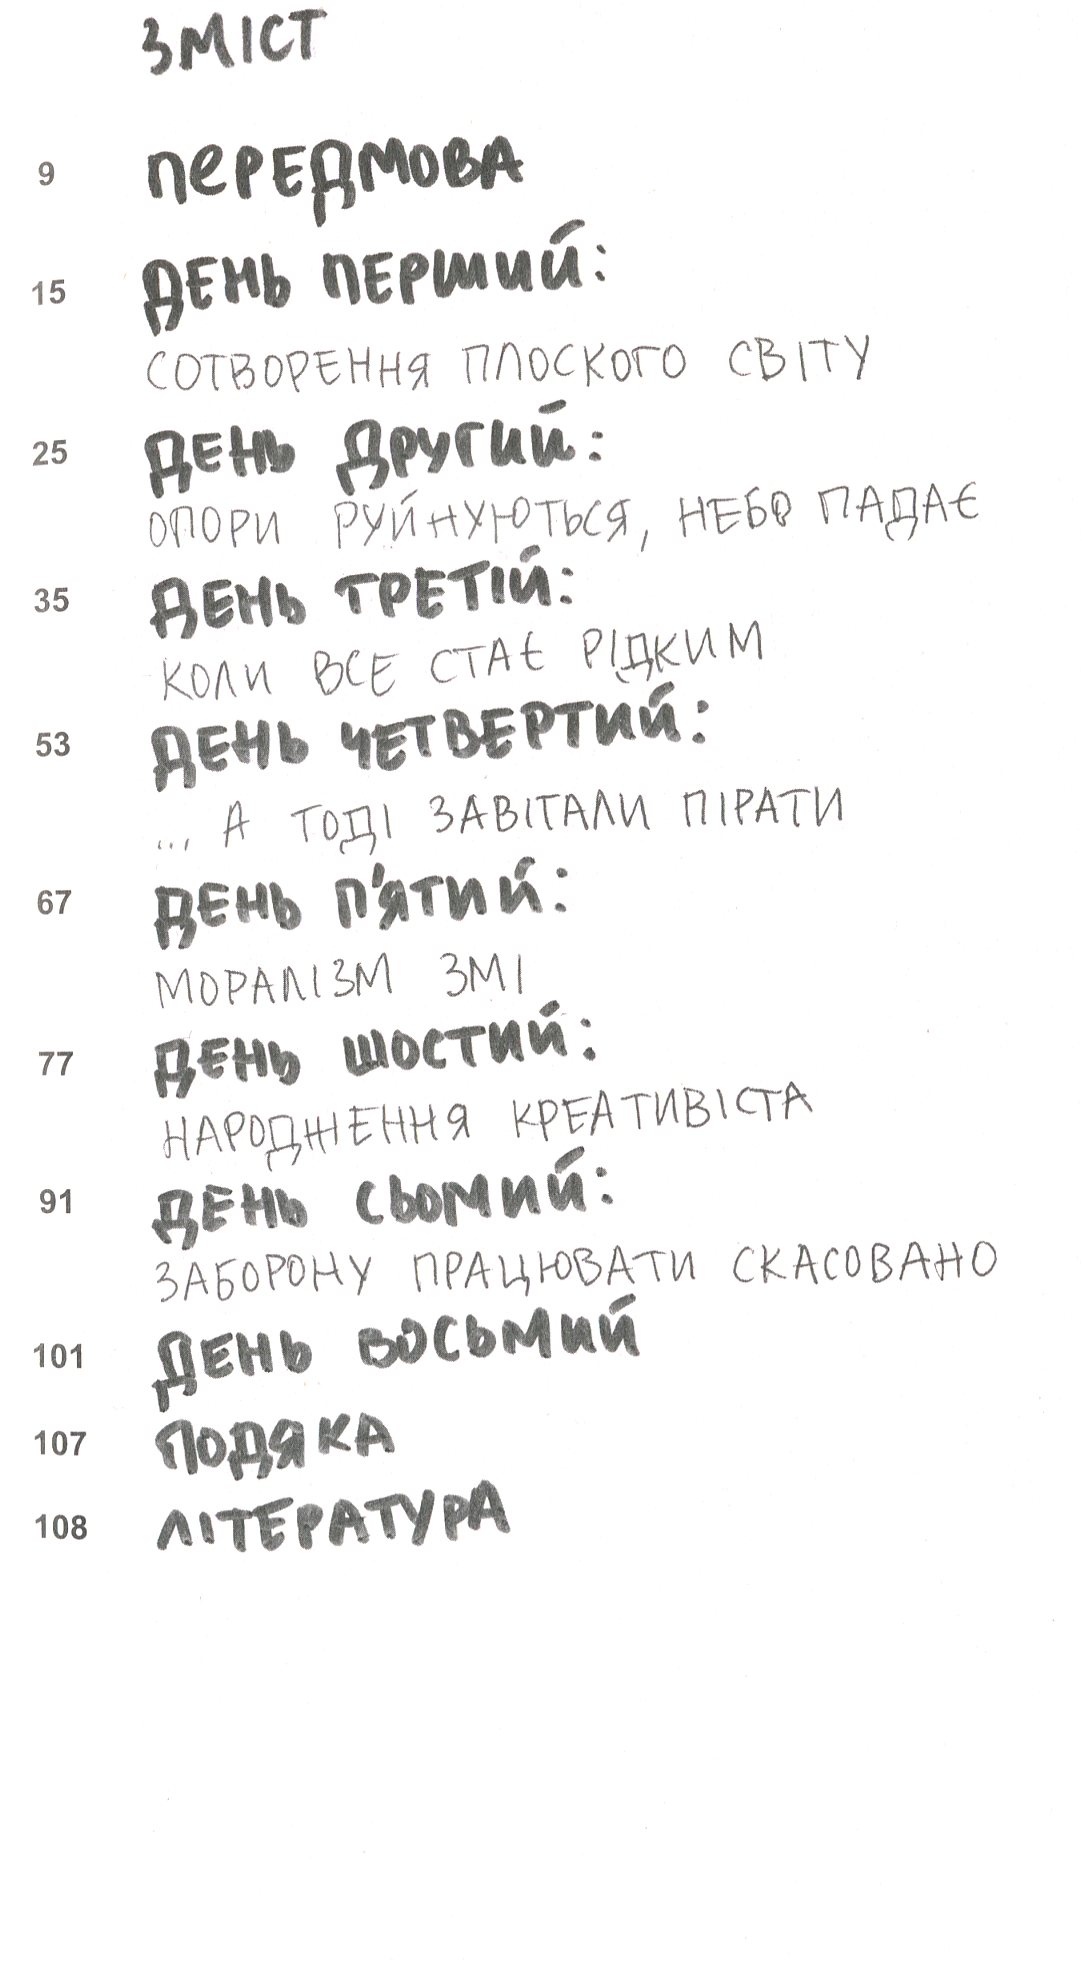 ЗМІСТ
9 ПЕРЕДМОВА
15 ДЕНЬ ПЕРШИЙ:
СОТВОРЕННЯ ПЛОСКОГО СВІТУ
25 ДЕНЬ ДРУГИЙ:
ОПОРИ РУЙНУЮТЬСЯ, НЕБО ПАДАЄ
35 ДЕНЬ ТРЕТІЙ:
КОЛИ ВСЕ СТАЄ РІДКИМ
53 ДЕНЬ ЧЕТВЕРТИЙ:
... А ТОДІ ЗАВІТАЛИ ПІРАТИ
67 ДЕНЬ П'ЯТИЙ:
МОРАЛІЗМ ЗМІ
77 ДЕНЬ ШОСТИЙ:
НАРОДЖЕННЯ КРЕАТИВІСТА
91 ДЕНЬ СЬОМИЙ:
ЗАБОРОНУ ПРАЦЮВАТИ СКАСОВАНО
101 ДЕНЬ ВОСЬМИЙ
107 ПОДЯКА
108 ЛІТЕРАТУРА